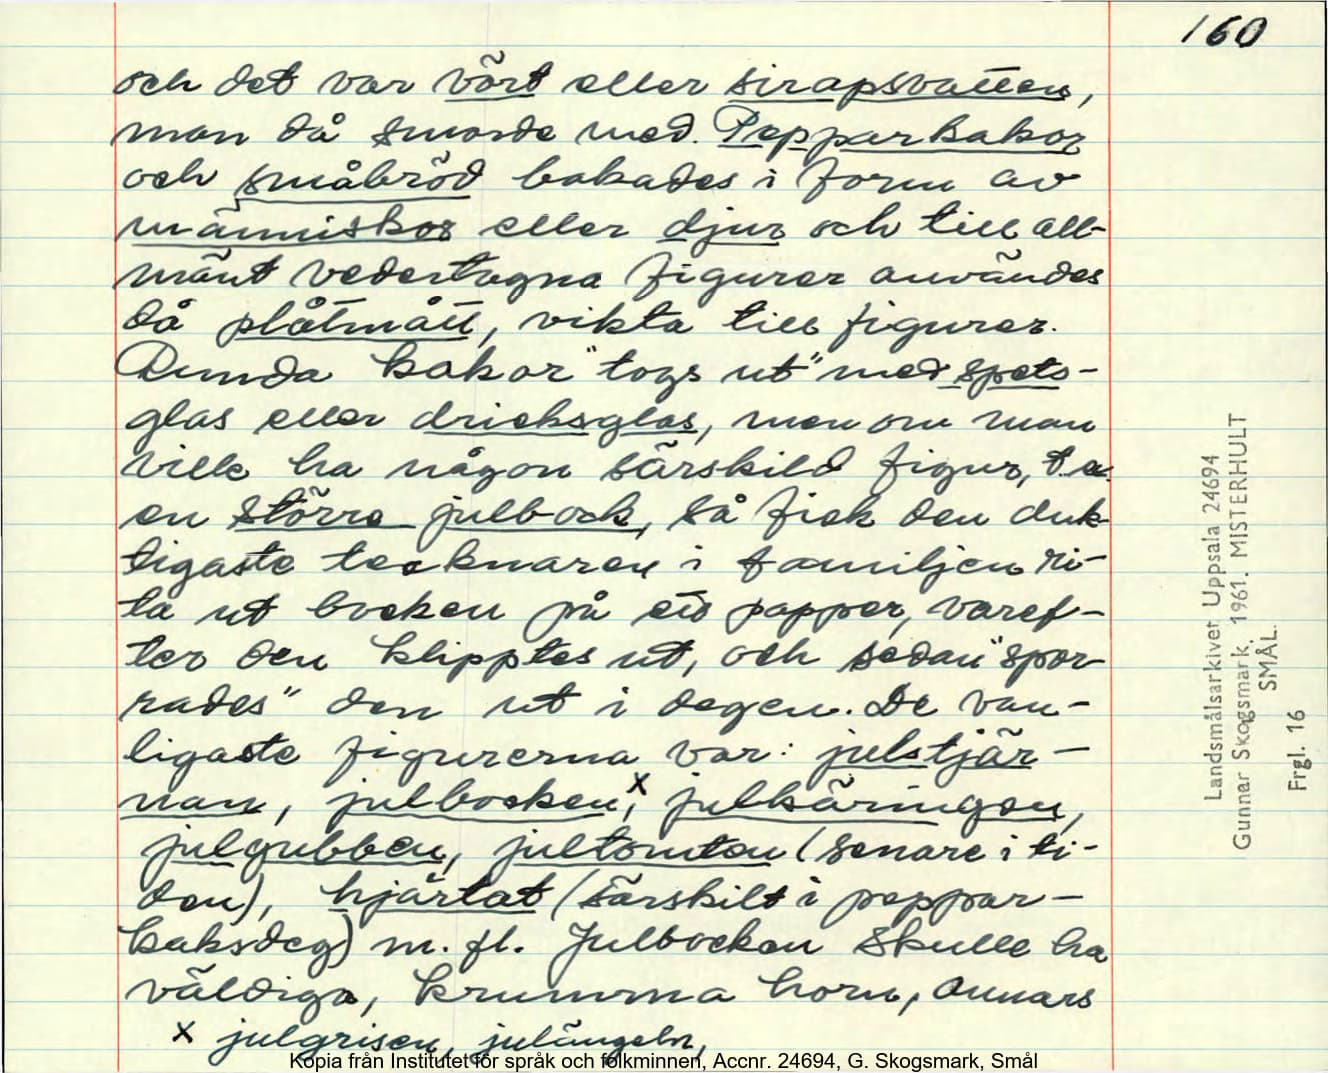 160
och det var vört eller sirapsvatten,
man då smorde med. Pepparkakor
och småbröd bakades i form av
människor eller djur och till all-
mänt vedertagna figurer användes
då plåtmått, vikta till figurer.
Runda kakor "togs ut" med spets-
glas eller dricksglas, men om man
ville ha någon särskild figur, t.ex.
en större julbock, så fick den duk-
tigaste tecknaren i familjen ri-
ta ut bocken på ett papper, varef-
ter den klipptes ut, och sedan "spor-
rades" den ut i degen. De van-
ligaste figurerna var: julstjär-
nan, julbocken, x julkäringen,
julgubben, jultomten (senare i ti-
den), hjärtat (särskilt i peppar-
kaksdeg) m. fl. Julbocken skulle ha
väldiga, krumma horn, annars
x julgrisen, julängeln,
Landsmålsarkivet Uppsala 24694
Gunnar Skogsmark. 1961. MISTERHULT
SMÅL.
Frgl. 16
Kopia från Institutet för språk och folkminnen, Accnr. 24694, G. Skogsmark, Smål